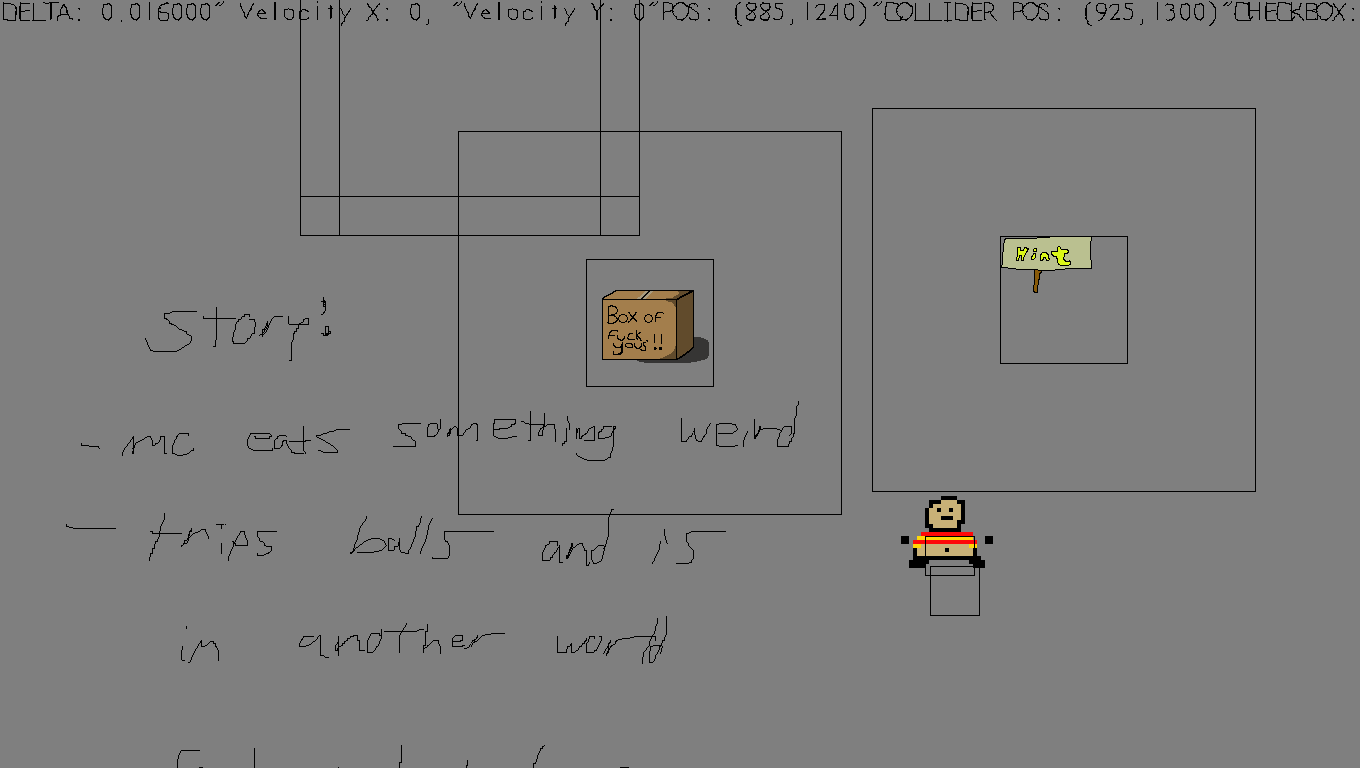 DELTA: 0.016000" Velocity X: 0, "Velocity Y: 0"POS: (885,1240)"COLLIDER POS: (925,1300)"CHECKBOX:
Hint
Box of
Fuck
yous!!
Story:
- mc eats something weird
- trips balls and is
in another world